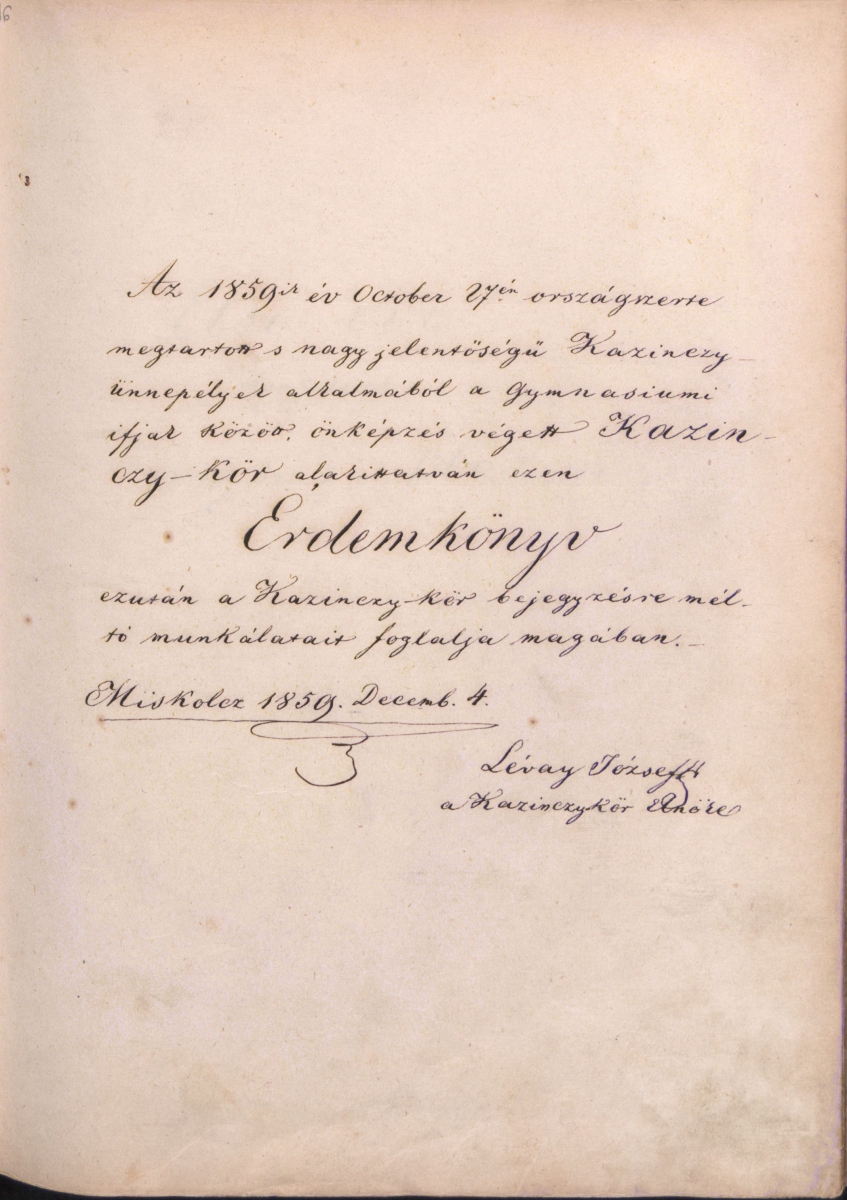 16
Az 1859ik év October 27én országszerte
megtartott s nagy jelentőségű Kazinczy-
ünnepélyek alkalmából a Gymnasiumi
ifjak között, önképzés végett Kazin-
czy-kör alakíttatván ezen
Érdemkönyv
ezután a Kazinczy-kör bejegyzésre mél-
tó munkálatait foglalja magában.—
Miskolcz 1859. Decemb. 4.
Lévay József
a Kazinczykör elnöke